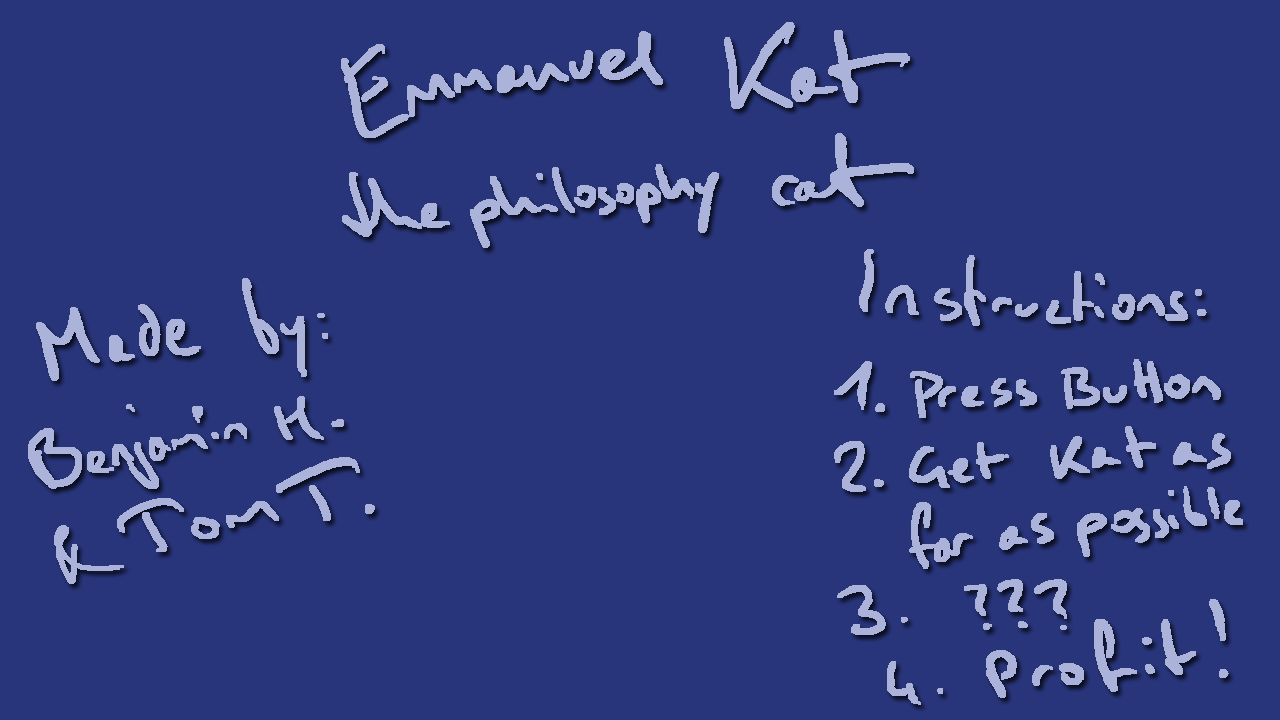 Emmanuel Kat
the philosophy cat
Made by:
Benjamin H.
& Tom T.
Instructions:
1. Press Button
2. Get Kat as
far as possible
3. ???
4. Profit!